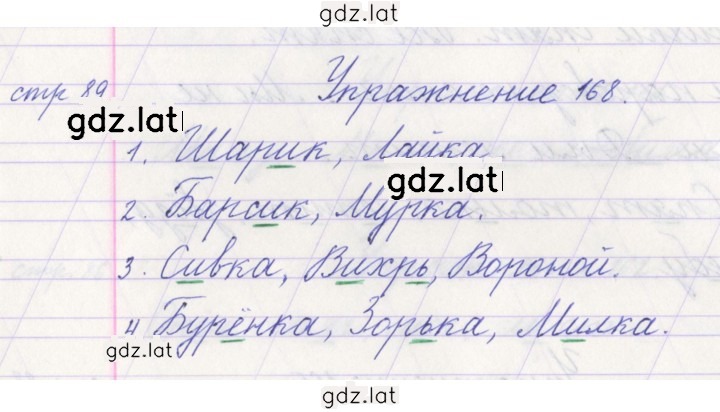 gdz.lat
стр 89 Упражнение 168.
gdz.lat
1. Шарик, Лайка.
gdz.lat
2. Барсик, Мурка.
3. Сивка, Вихрь, Вороной.
4 Бурёнка, Зорька, Милка.
gdz.lat
gdz.lat